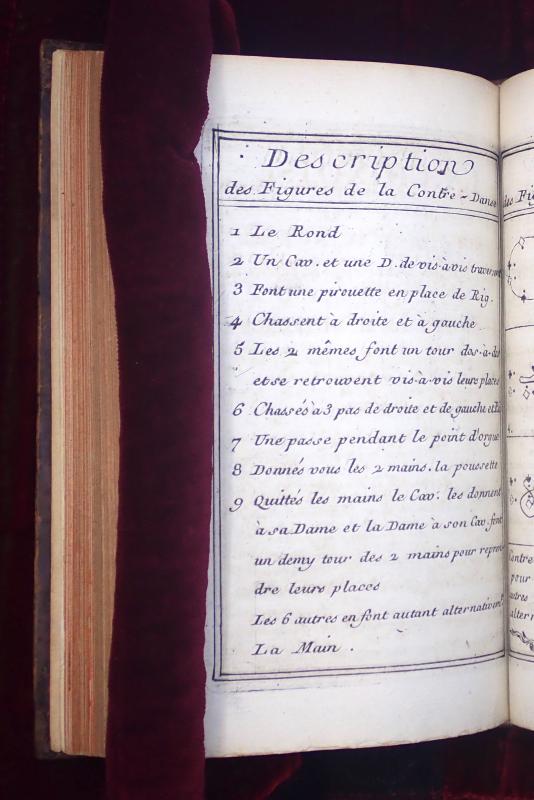 Description
des Figures de la Contre-Danse
1 Le Rond
2 Un Cav. et une D. de vis-à-vis traversent
3 Font une pirouette en place de Rig.
4 Chassent à droite et à gauche
5 Les 2 mêmes font un tour dos-à-dos
et se retrouvent vis-à-vis leurs places
6 Chassés à 3 pas de droite et de gauche
7 Une passe pendant le point d'orgue
8 Donnés vous les 2 mains. la poussette
9 Quittés les mains le Cav. les donnent
à sa Dame et la Dame à son Cav. font
un demy tour des 2 mains pour repren-
dre leurs places
Les 6 autres en font autant alternativemt
La Main .
des Fig
4.
Contre
pour
autres
altern